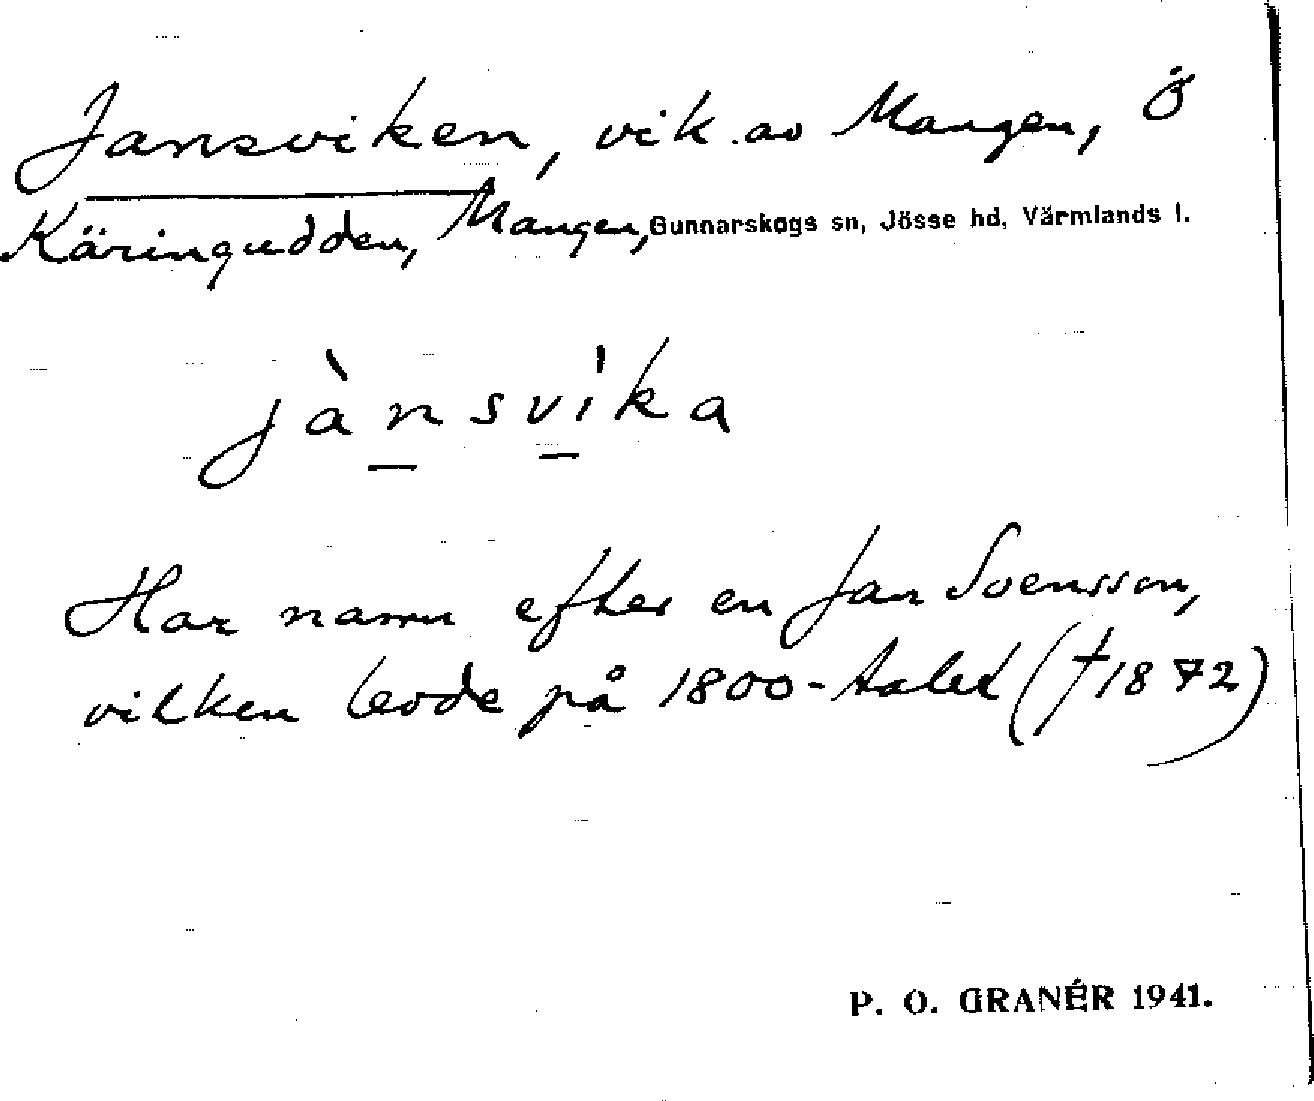 Jansviken, vik av Mangen, Ö
Käringudden, Mangen, Gunnarskogs sn, Jösse hd, Värmlands l.
jànsvi̍ka
Har namn efter en Jan Svensson,
vilken levde på 1800-talet († 1872)
P. O. GRANÉR 1941.